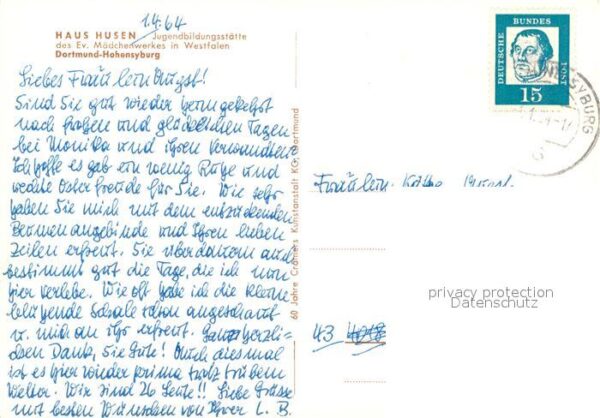 1.4.64
HAUS HUSEN Jugendbildungsstätte
des Ev. Mädchenwerkes in Westfalen
Dortmund-Hohensyburg
Liebes Fräulein
Sind Sie gut wieder heimgekehrt
nach frohen und glücklichen Tagen
bei Monika und Ihren Verwandten
Ich hoffe es gab ein wenig Ruhe und
rechte Osterfreude für Sie. Wie sehr
haben Sie mich mit dem entzückenden
Blumenangebinde und Ihren lieben
Zeilen erfreut. Sie überdauern auch
bestimmt gut die Tage, die ich nun
hier verlebe. Wie oft habe ich die kleine
blühende Schale schon angeschaut
u. mich an ihr erfreut. Ganz herzli-
chen Dank, Sie Gute! Auch diesmal
ist es hier wieder prima trotz trübem
Wetter. Wir sind 26 Leute!! Liebe Grüsse
mit besten Wünschen von Ihrer L. B.
60 Jahre Cramers Kunstanstalt KG, Dortmund
DEUTSCHE BUNDESPOST
15
SYBURG
Fräulein Käthe
43
privacy protection
Datenschutz